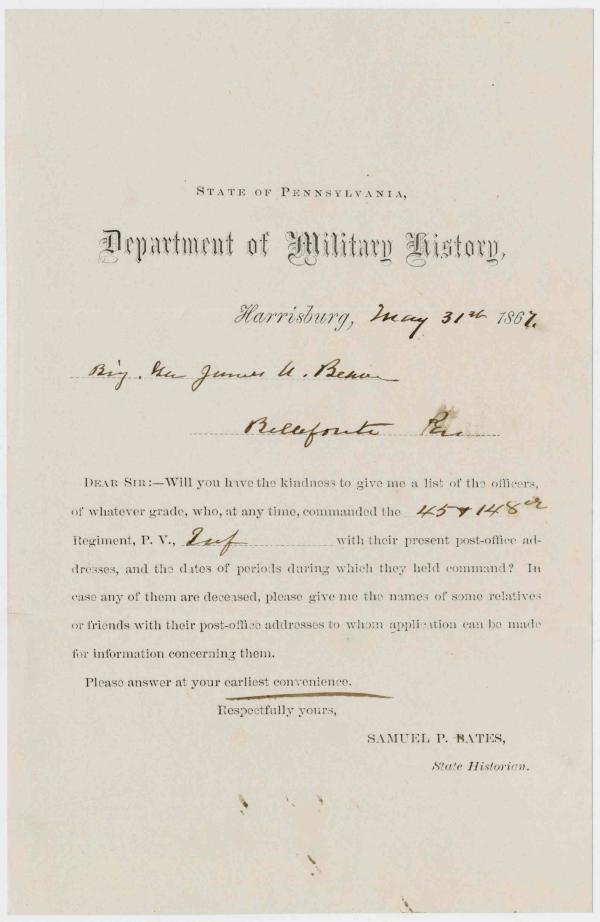 STATE OF PENNSYLVANIA,
Department of Military History,
Harrisburg, May 31st 1867.
Brig. Gen James A. Beaver
Bellefonte Pa
DEAR SIR:—Will you have the kindness to give me a list of the officers,
of whatever grade, who, at any time, commanded the 45 & 148th
Regiment, P. V., Inf with their present post-office ad-
dresses, and the dates of periods during which they held command? In
case any of them are deceased, please give me the names of some relatives
or friends with their post-office addresses to whom application can be made
for information concerning them.
Please answer at your earliest convenience.
Respectfully yours,
SAMUEL P. BATES,
State Historian.